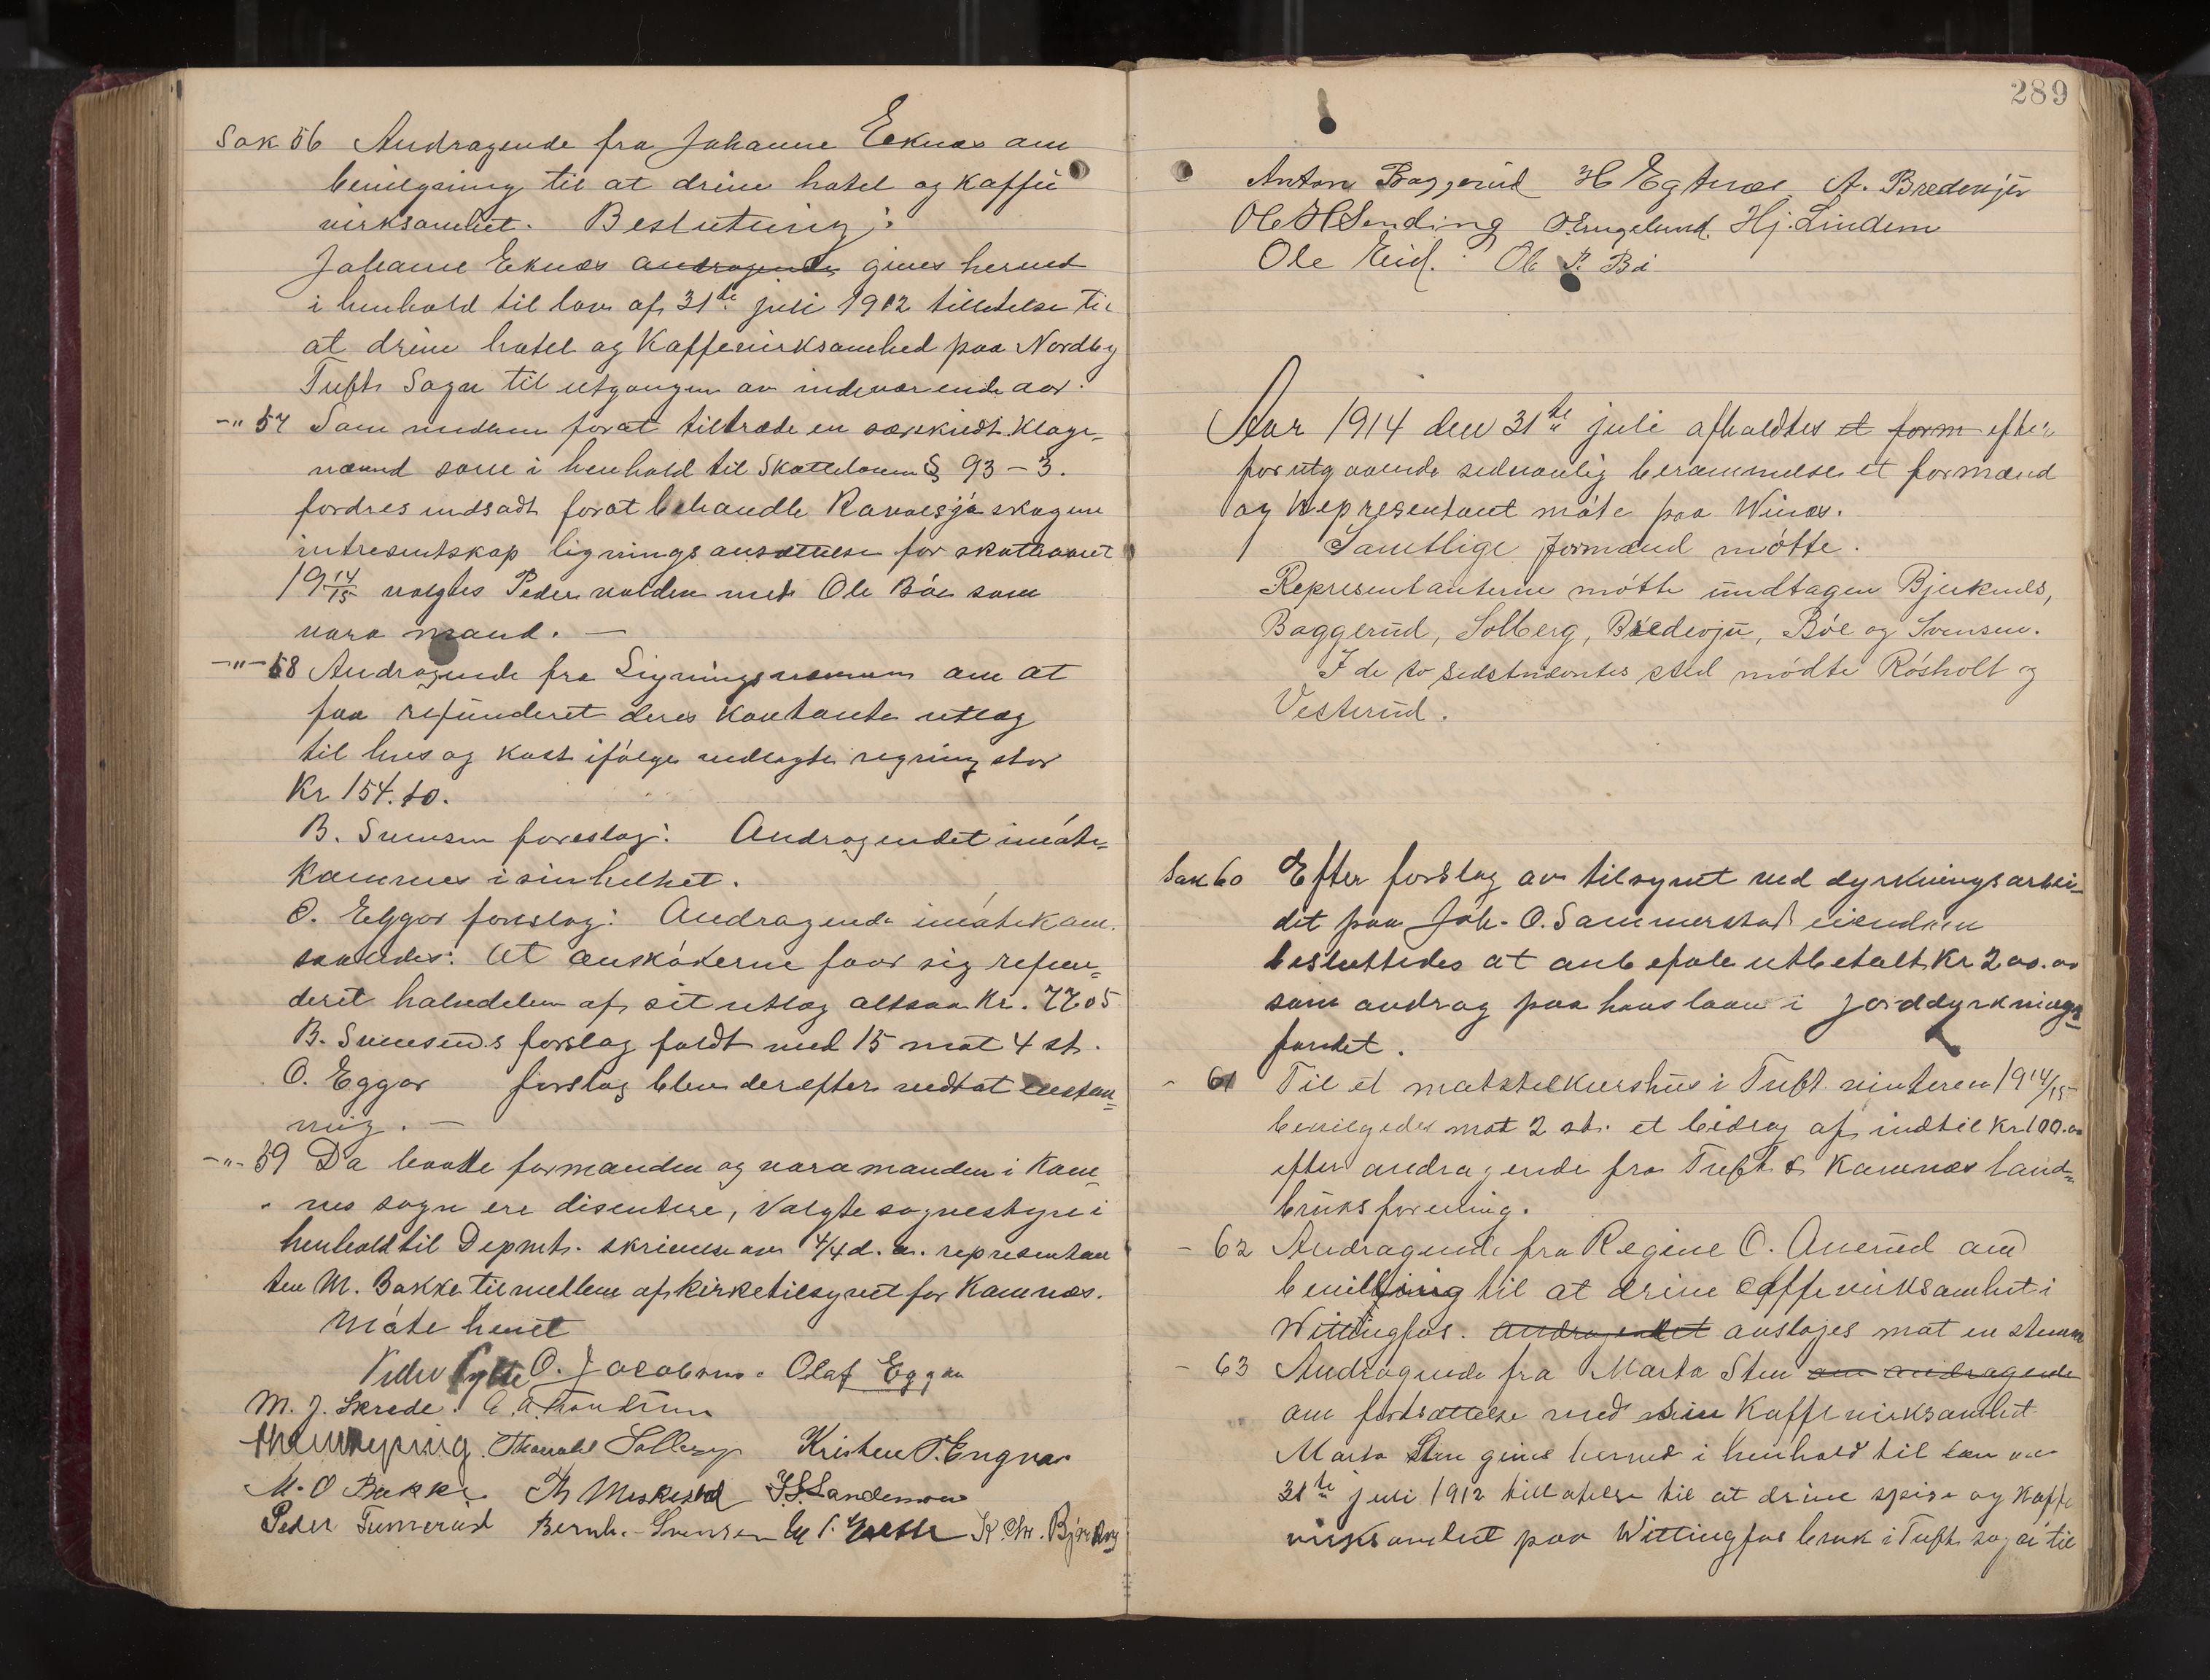 Sak 56 Andragende fra Johanne Eeknæs om
bevilgning til at drive hotel og kaffie
virksomhet. Beslutning:
Johanne Eknæs andragende gives herved
i henhold til lov af 31te juli 1912 tilladelse til
at drive hotel og Kaffevirksomhed paa Nordby
Tufts Sogn til utgangen av indeværende aar.
-"- 57 Som medlem forat tiltræde en særskildt Klage-
nævnd som i henhold til Skatteloven § 93-3.
fordres indsadt forat behandle Ravalsjø skogene
intresentskap ligningsansættelse for skatteaaret
19 14/15 valgtes Peder volden med Ole Bøe som
vara mand. —
-"- 58 Andragende fra Ligningsnævnen om at
faa refunderet deres Kontante utlæg
til hus og kost ifølge vedlagte regning stor
Kr 154.10.
B. Svensen foreslog: Andragendet imøte-
kommes i sin helhet.
O. Eggar foreslog: Andragende imøtekom.
saaledes: At ansøkerne faar sig refun-
deret halvdelen af sit utlæg altsaa Kr. 77.05
B. Svensens forslag faldt med 15 mot 4 st.
O. Eggar forslag blev derefter vedtat enstem=
mig. —
-"- 59 Da baade formanden og varamanden i Kom-
nes sogn ere disentere, valgte sognestyre i
henhold til Depmts. skrivelse av 4/4 d. a. representan
ten M. Bakke til medlem af kirketilsynet for Komnæs.
Møte hevet
Peder Kylte O. Jacobsen. Olaf Eggar
M. J. Skrede.
Thorvald Solberg Kristen P. Engnæs
M. O Bakke Th Meskestad J. S. Sandemoen
Peder Tumerud Bernh. Svensen K Chr. Bjørndag
289
Anton Baggerud H Egtnæs A. Bredevjer
Ole H Sending O. Engelund. Hj. Lindem
Ole Eid. Ole P. Bø
Aar 1914 den 31te juli afholdtes et form efter
forutgaaende sedvanlig berammelse et formænd
og Representant møte paa Winæs.
Samtlige formænd møtte.
Representanterne møtte undtagen Bjerknes,
Baggerud, Solberg, Bredevju, Bøe og Svensen.
I de to sidstnævntes sted mødte Røsholt og
Vesterud.
Sak 60 Efter forslag av tilsynet ved dyrkningsarbei-
det paa Joh. O. Sammerstad eiendom
besluttedes at anbefale utbetalt Kr 200.00
som andrag paa hans laan i jorddyrknings=
fondet.
- 61 Til et matstelkurshus i Tuft vinteren 1914/15
bevilgedes mot 2 st. et bidrag af indtil Kr 100.00
efter andragende fra Tuft & Komnæs land=
bruksforening.
- 62 Andragende fra Regine O. Auerud om
bevilling til at drive caffevirksomhet i
Wittingfos. Andragendet avslaes mot en stemme
- 63 Andragende fra Marta Sten om andragende
om fortsættelse med sin Kaffevirksomhet
Marta Sten gives herved i henhold til lov av
31te juli 1912 tilladelse til at drive spise og Kaffe
virksomhet paa Wittingfos bruk i Tuft sogn til